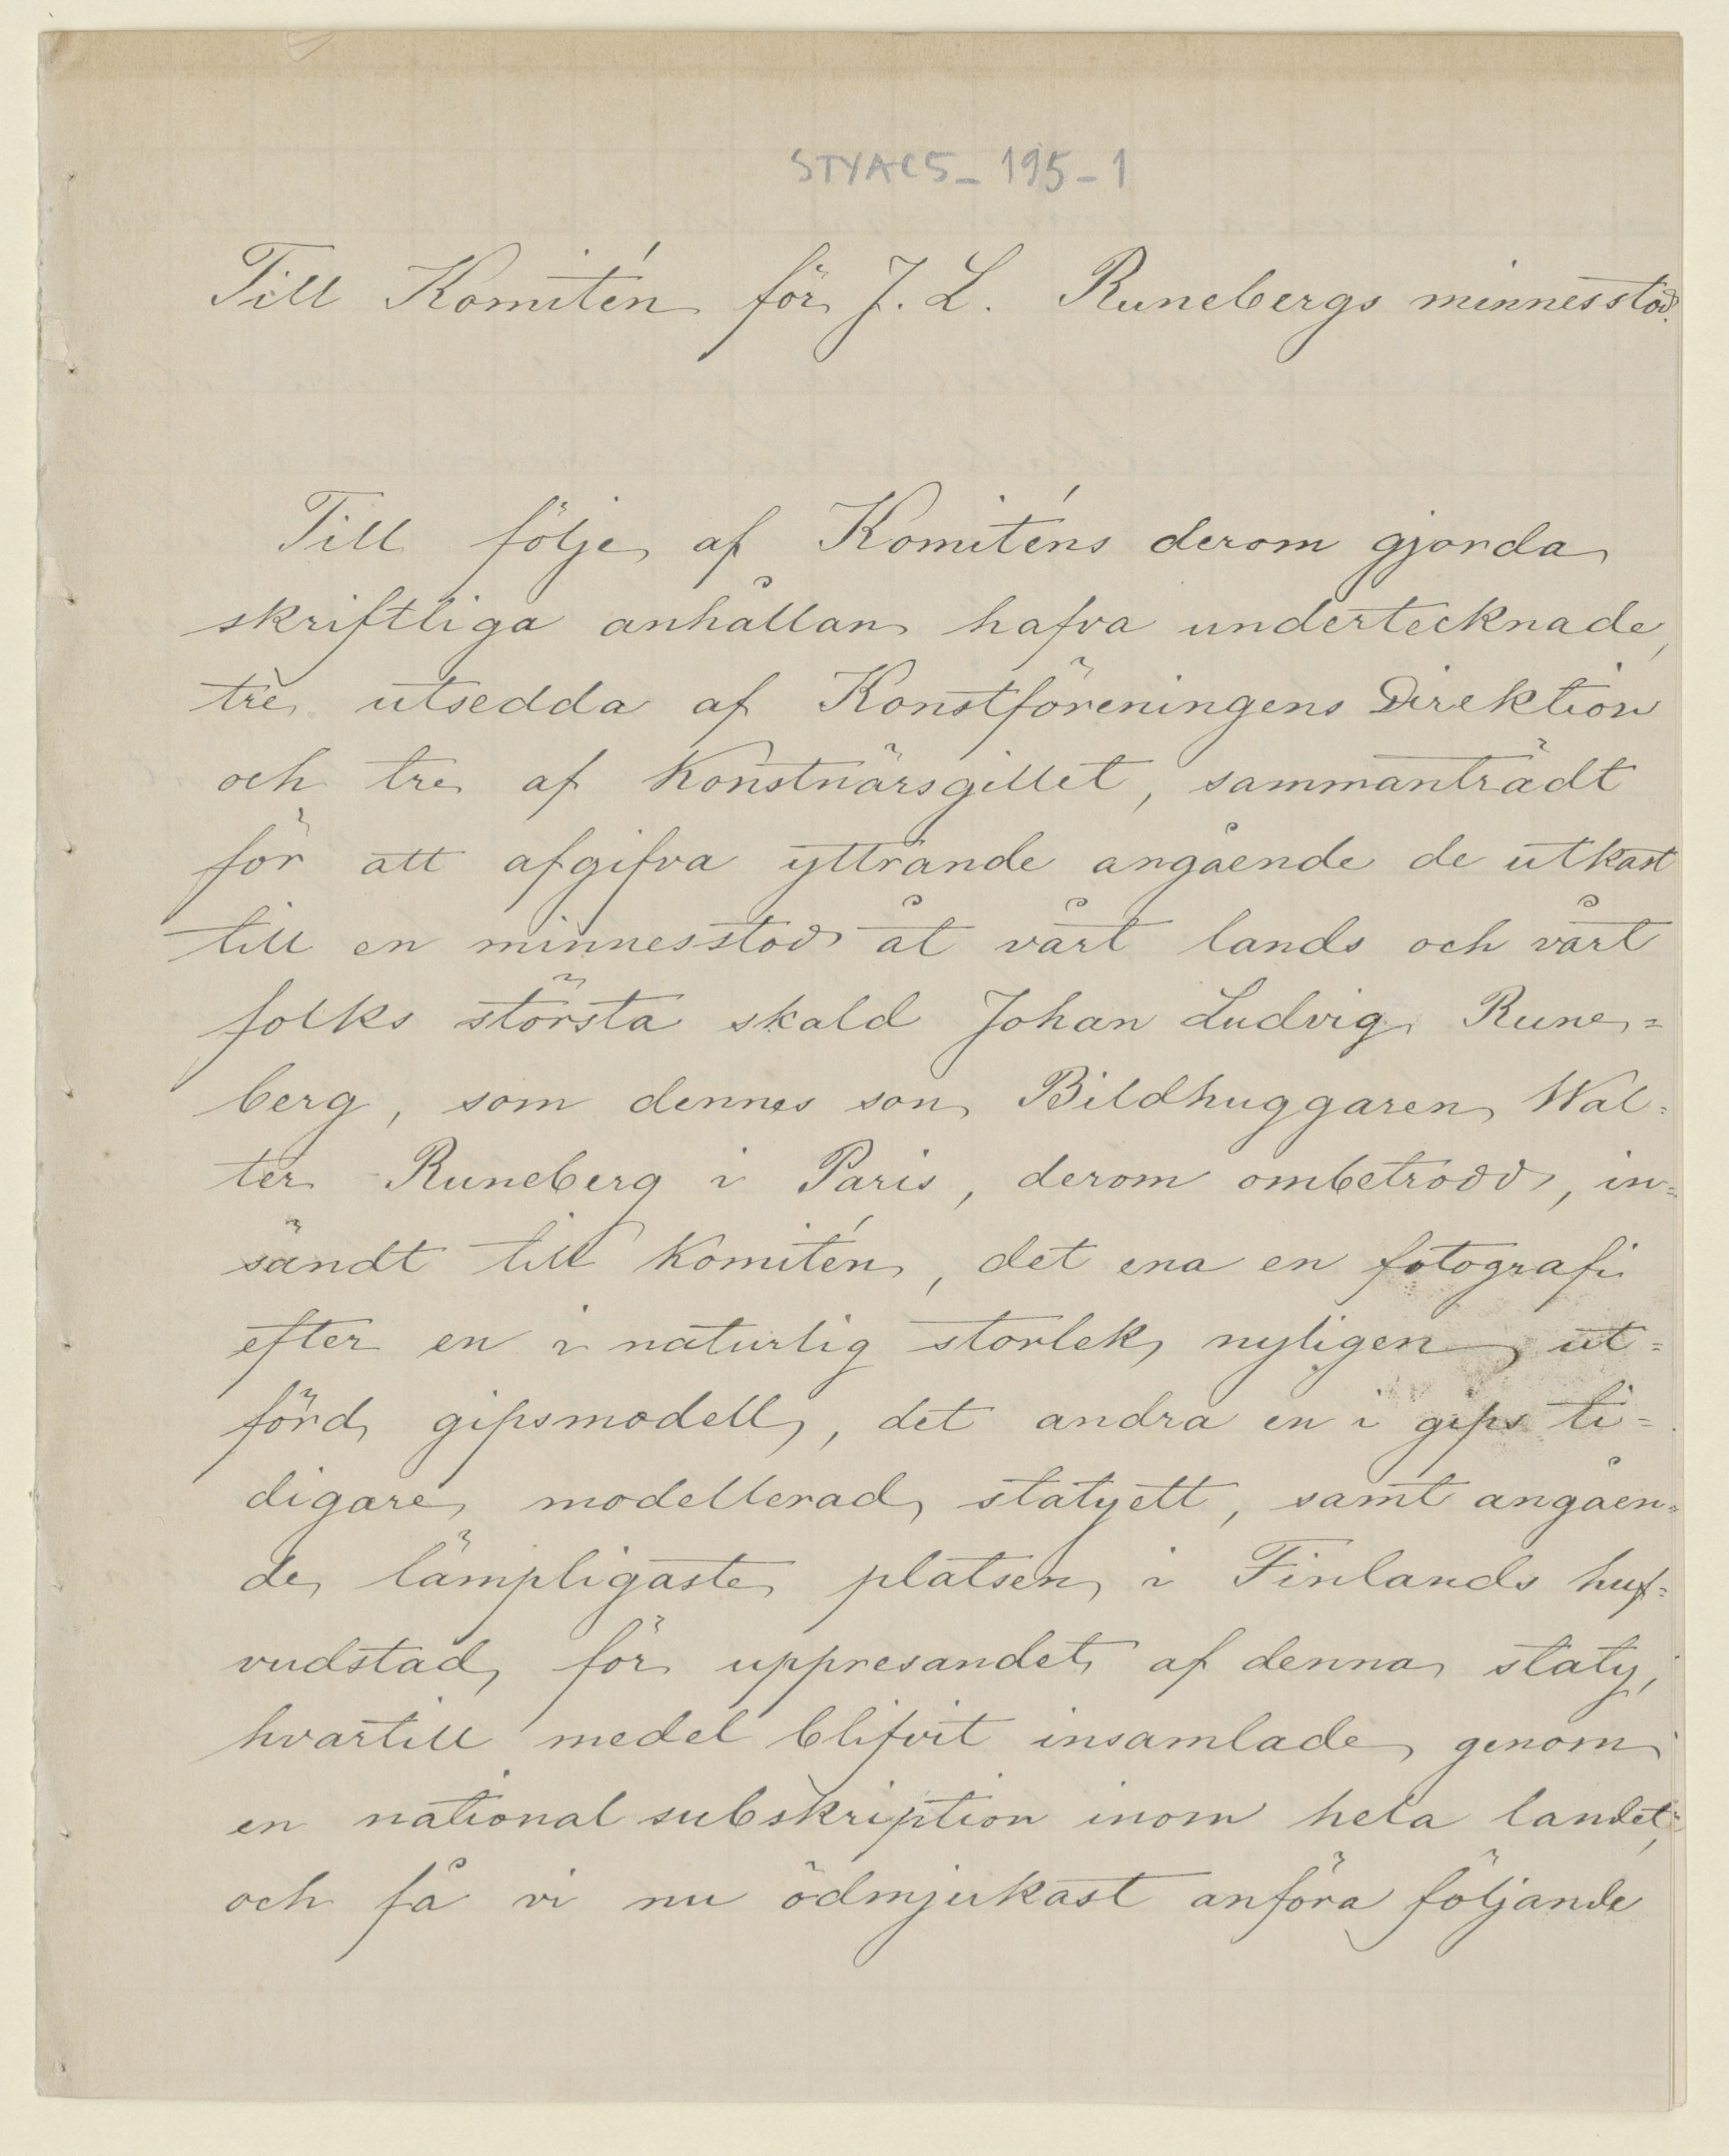 STYAC5_195-1
Till Komitén för J. L. Runebergs minnesstod.
Till följe af Komiténs derom gjorda
skriftliga anhållan hafva undertecknade,
tre utsedda af Konstföreningens Direktion
och tre af Konstnärsgillet, sammanträdt
för att afgifva yttrande angående de utkast
till en minnesstod åt vårt lands och vårt
folks största skald Johan Ludvig Rune=
berg, som dennes son Bildhuggaren Wal=
ter Runeberg i Paris, derom ombetrodd, in=
sändt till Komitén, det ena en fotografi
efter en i naturlig storlek nyligen ut=
förd gipsmodell, det andra en i gips ti=
digare modellerad statyett, samt angåen=
de lämpligaste platsen i Finlands huf=
vudstad för uppresandet af denna staty,
hvartill medel blifvit insamlade genom
en national subskription inom hela landet,
och få vi nu ödmjukast anföra följande